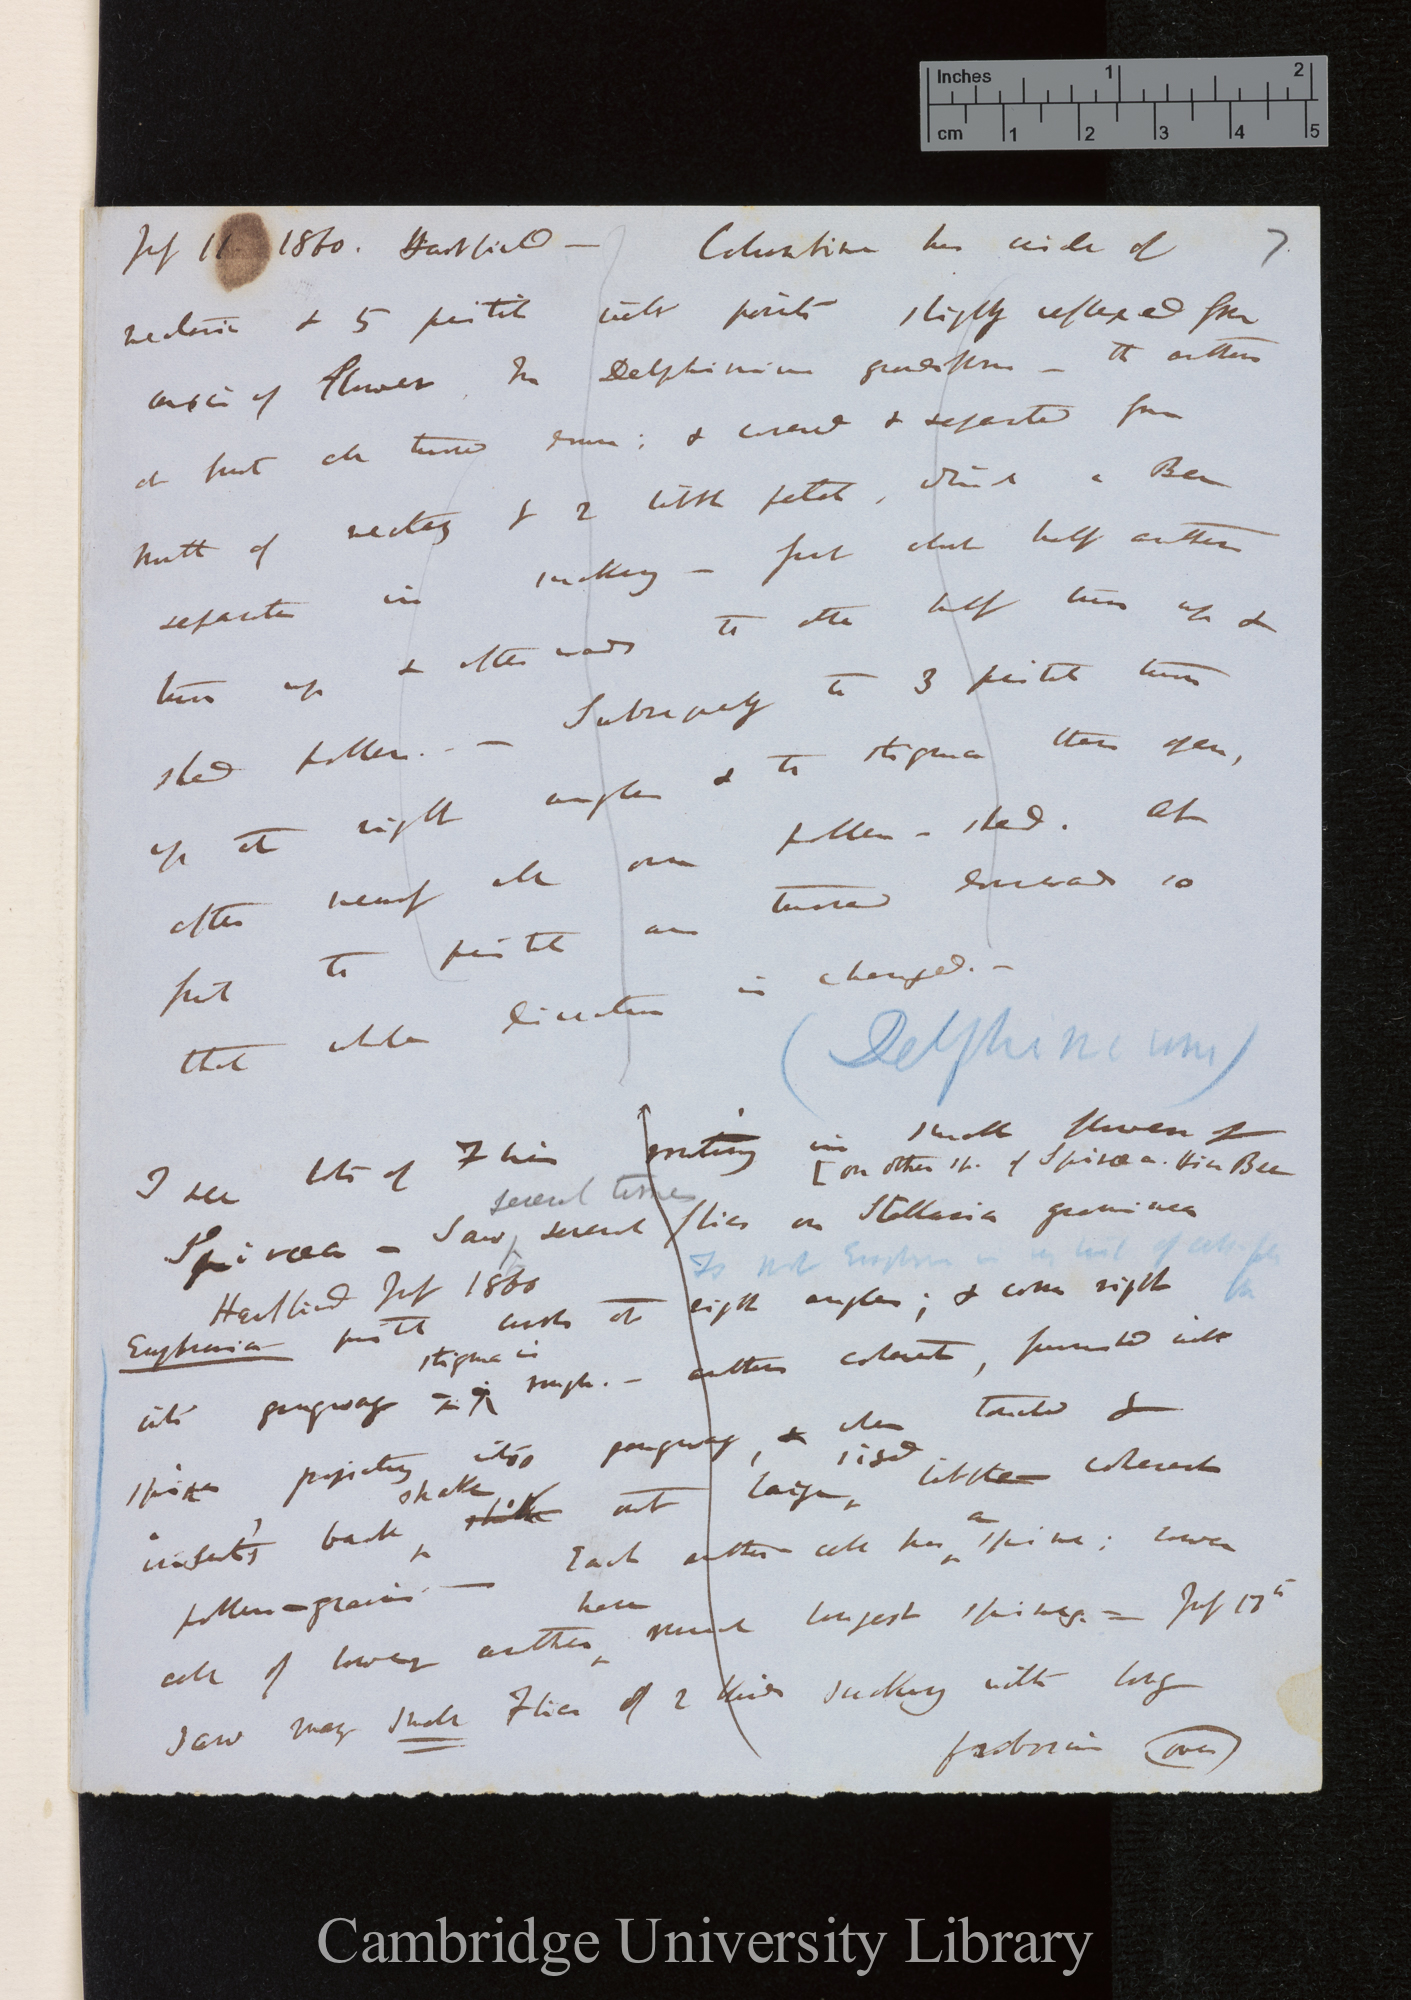 Inches 1 2
cm 1 2 3 4 5
July 11 1860. Hartfield — Columbine has circle of 7.
nectaries & 5 pistils with points slightly reflexed from
axis of flower. In Delphinium — the anthers
at first all turned down; & covered & separated from
mouth of nectary by 2 little petals, which a Bee
separates in sucking — first about half anthers
turn up & afterwards the other half turn up &
shed pollen. — Subsequently the 3 pistils turn
up at right angles & the stigma then open,
after nearly all own pollen - shed. At
first the pistils are turned downwards so
that whole direction is changed. —
(Delphinium)
I see lots of Flies in small flowers of
[on other sp. of Spiræa. Hive Bees
several times
Spiræa — Saw several flies on Stellaria graminea
Is not Euphrasia in
Hartfield July 1860
Euphrasia pistil at right angles; & comes right
stigma is
into gangway rough. — anthers coherent, furnished with
spines projecting into gangway, & when touched by
shake sized
insect's back, out large, little coherent
a
pollen-grains — Each anther-cell has spine; lower
have
cell of lower anthers much longest spines. — July 17th
Saw many small Flies of 2 kinds sucking with long
proboscis (over)
Cambridge University Library